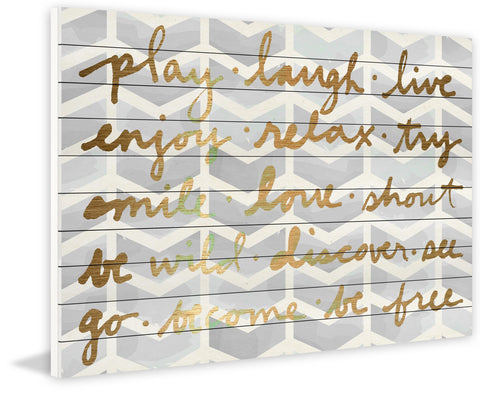 play · laugh · live
enjoy · relax · try
smile · love · shout
be wild · discover · see
go · become · be free